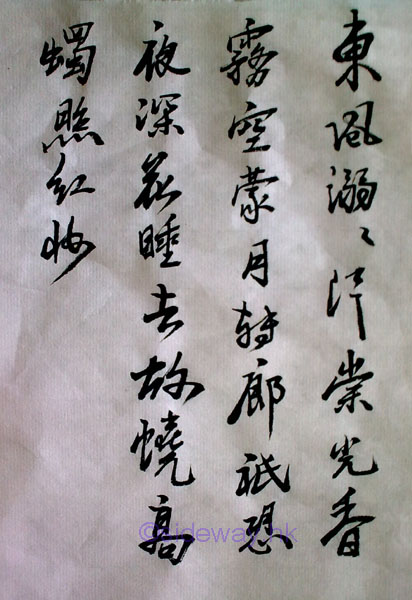 東風溺〻泛崇光香
霧空蒙月轉廊祇恐
夜深花睡去故燒高
燭照紅妝
©sideway.hk